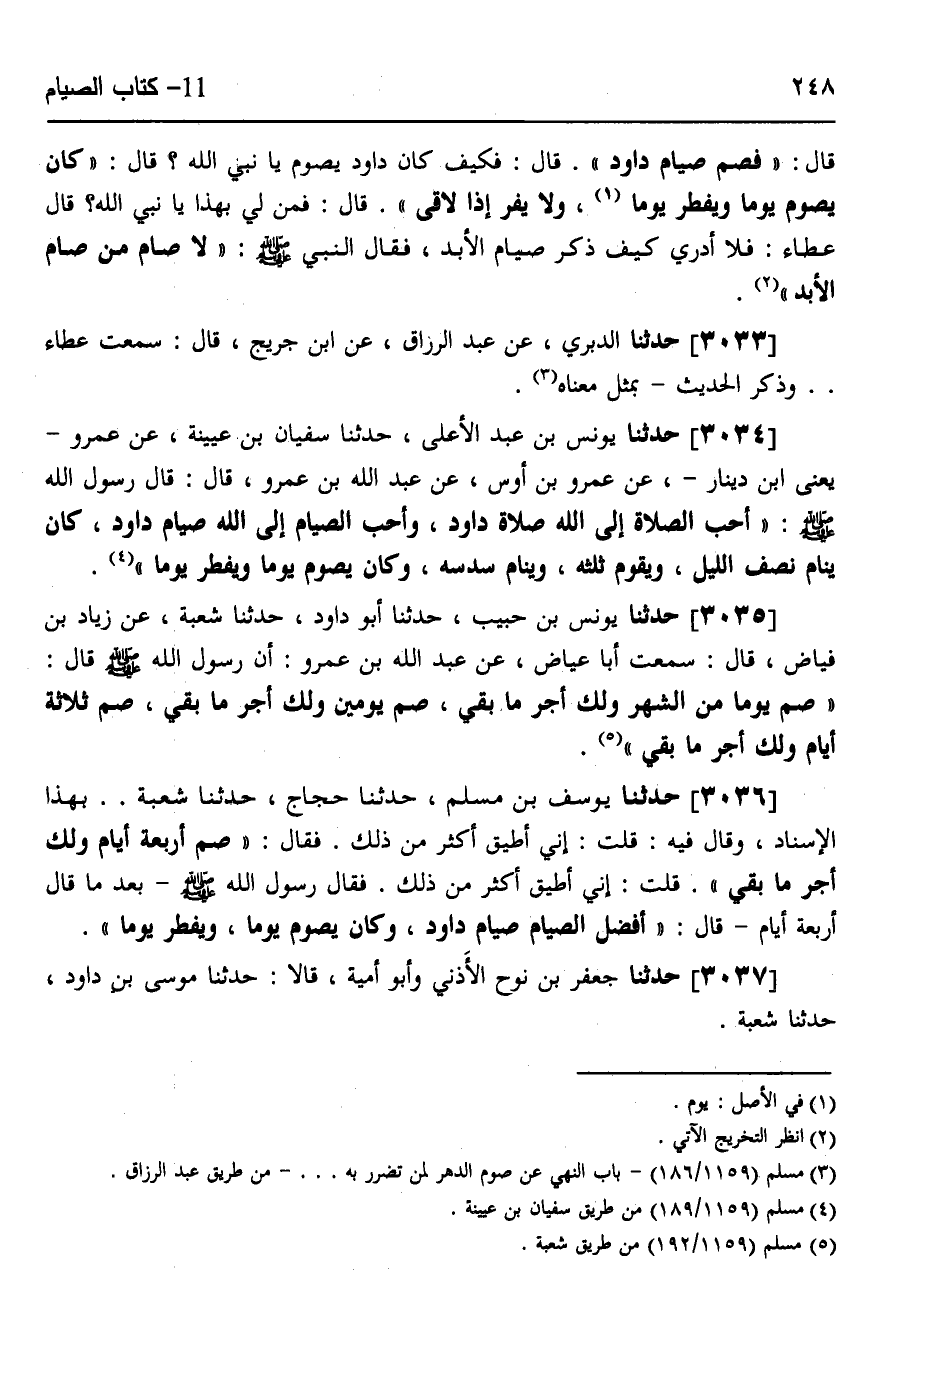 ٢٤٨ 11- كتاب الصيام
قال : « فصم صيام داود » . قال : فكيف كان داود يصوم يا نبي الله ؟ قال : « كان
يصوم يوما ويفطر يوما (١) ، ولا يفر إذا لاقى » . قال : فمن لي بهذا يا نبي الله؟ قال
عطاء : فلا أدري كيف ذكر صيام الأبد ، فقال النبي ﷺ : « لا صام من صام
الأبد »(٢) .
[٣٠٣٣] حدثنا الدبري ، عن عبد الرزاق ، عن ابن جريج ، قال : سمعت عطاء
. . وذكر الحديث – بمثل معناه(٣) .
[٣٠٣٤] حدثنا يونس بن عبد الأعلى ، حدثنا سفيان بن عيينة ، عن عمرو –
يعنى ابن دينار – ، عن عمرو بن أوس ، عن عبد الله بن عمرو ، قال : قال رسول الله
ﷺ : « أحب الصلاة إلى الله صلاة داود ، وأحب الصيام إلى الله صيام داود ، كان
ينام نصف الليل ، ويقوم ثلثه ، وينام سدسه ، وكان يصوم يوما ويفطر يوما »(٤) .
[٣٠٣٥] حدثنا يونس بن حبيب ، حدثنا أبو داود ، حدثنا شعبة ، عن زياد بن
فياض ، قال : سمعت أبا عياض ، عن عبد الله بن عمرو : أن رسول الله ﷺ قال :
« صم يوما من الشهر ولك أجر ما بقي ، صم يومين ولك أجر ما بقي ، صم ثلاثة
أيام ولك أجر ما بقي »(٥) .
[٣٠٣٦] حدثنا يوسف بن مسلم ، حدثنا حجاج ، حدثنا شعبة . . بهذا
الإسناد ، وقال فيه : قلت : إني أطيق أكثر من ذلك . فقال : « صم أربعة أيام ولك
أجر ما بقي » . قلت : إني أطيق أكثر من ذلك . فقال رسول الله ﷺ – بعد ما قال
أربعة أيام – قال : « أفضل الصيام صيام داود ، وكان يصوم يوما ، ويفطر يوما » .
[٣٠٣٧] حدثنا جعفر بن نوح الأَذني وأبو أمية ، قالا : حدثنا موسى بن داود ،
حدثنا شعبة .
(١) في الأصل : يوم .
(٢) انظر التخريج الآتي .
(٣) مسلم (١٨٦/١١٥٩) – باب النهي عن صوم الدهر لمن تضرر به . . . – من طريق عبد الرزاق .
(٤) مسلم (١٨٩/١١٥٩) من طريق سفيان بن عيينة .
(٥) مسلم (١٩٢/١١٥٩) من طريق شعبة .